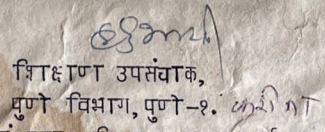 शिक्षण उपसंचालक,
पुणे विभाग, पुणे-१. करीता